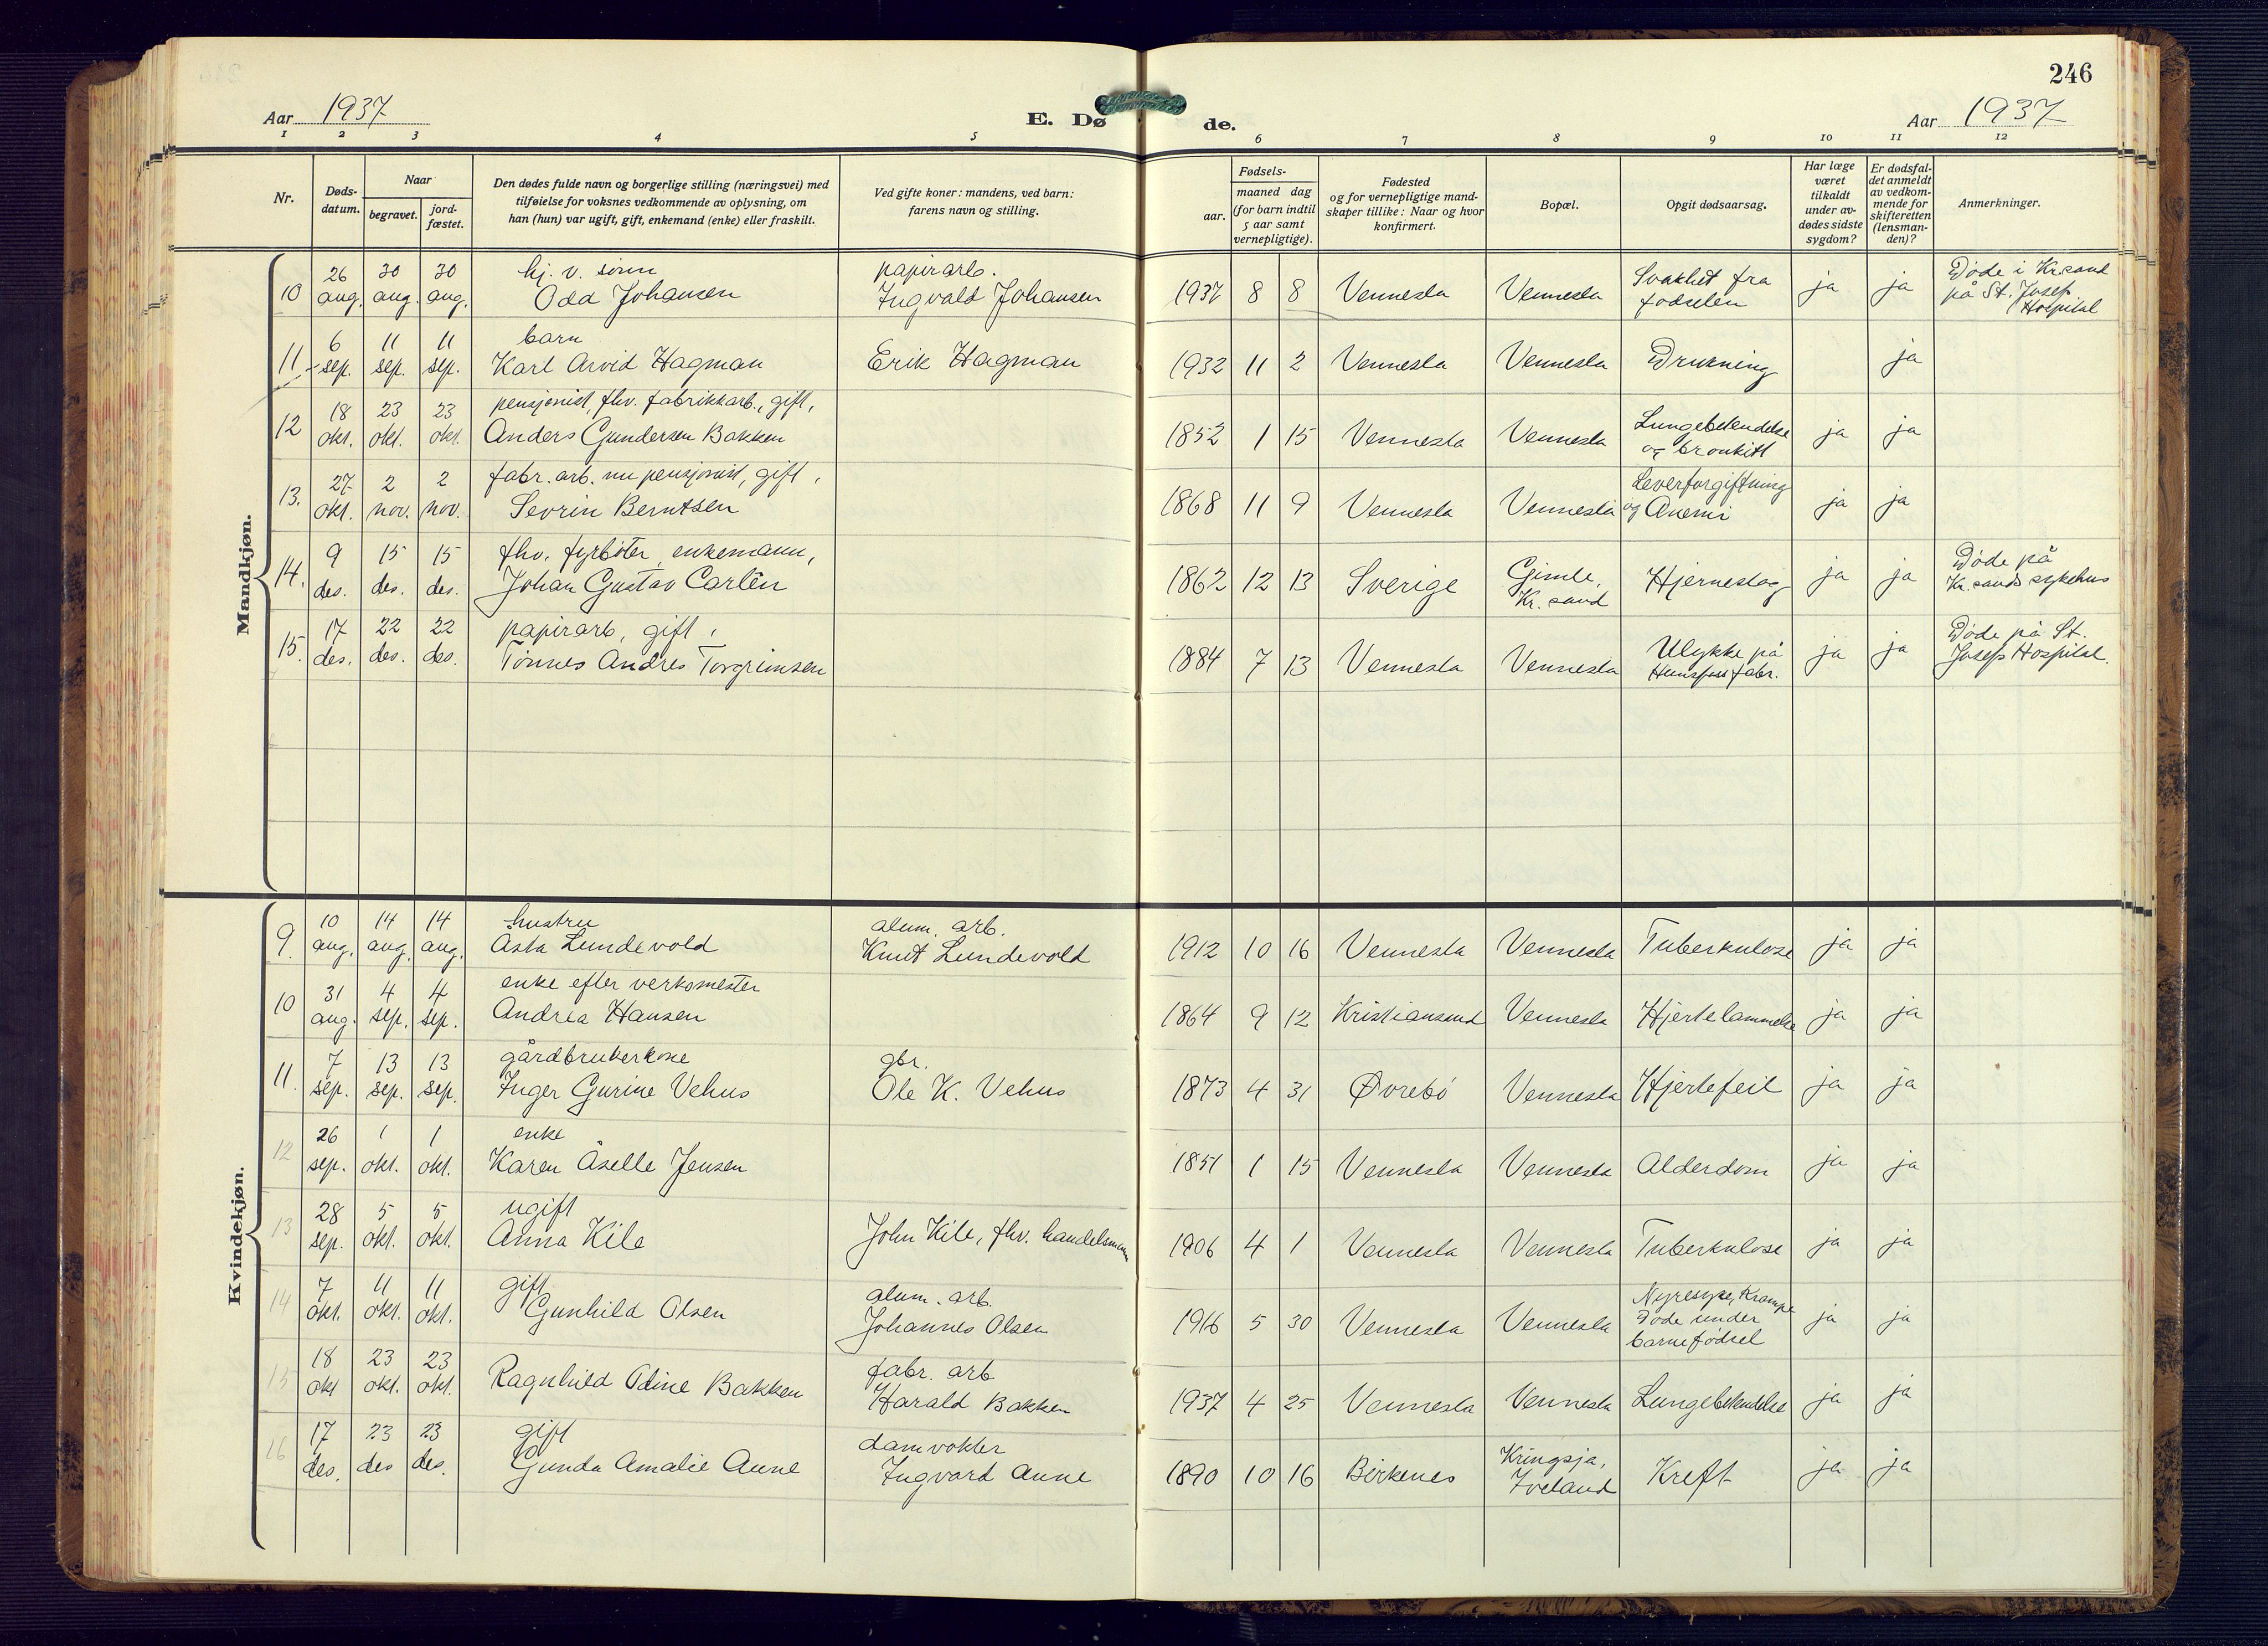 246
Aar 1937
E. Dø de.
Aar 1937
1 2 3 4 5 6 7 8 9 10 11 12
Nr.
Døds-
datum.
Naar
begravet.
jord-
fæstet.
Den dødes fulde navn og borgerlige stilling (næringsvei) med
tilføielse for voksnes vedkommende av oplysning, om
han (hun) var ugift, gift, enkemand (enke) eller fraskilt.
Ved gifte koner: mandens, ved barn:
farens navn og stilling.
Fødsels-
aar.
maaned dag
(for barn indtil
5 aar samt
vernepligtige).
Fødested
og for vernepligtige mand-
skaper tillike: Naar og hvor
konfirmert.
Bopæl.
Opgit dødsaarsag.
Har læge
været
tilkaldt
under av-
dødes sidste
sygdom?
Er dødsfal-
det anmeldt
av vedkom-
mende for
skifteretten
(lensman-
den)?
Anmerkninger.
Mandkjøn.
26 30 30 hj. v. sønn papirarb. Svakhet fra Døde i Kr.sand
10 aug. aug. aug. Odd Johansen Ingvald Johansen 1937 8 8 Vennesla Vennesla fødselen ja ja på St. Josefs
Hospital
6 11 11 barn
11 sep. sep. sep. Karl Arvid Hagman Erik Hagman 1932 11 2 Vennesla Vennesla Drukning ja
18 23 23 pensjonist, fhv. fabrikkarb., gift, Lungebetendelse
12 okt. okt. okt. Anders Gundersen Bakken 1852 1 15 Vennesla Vennesla og bronkitt ja ja
27 2 2 fabr. arb. nu pensjonist, gift, Leverforgiftning
13. okt. nov. nov. Sevrin Berntsen 1868 11 9 Vennesla Vennesla og Anemi ja ja
9 15 15 fhv. fyrbøter, enkemann, Gimle, Døde på
14. des. des. des. Johan Gustav Carlén 1862 12 13 Sverige Kr. sand Hjerneslag ja ja Kr.sands sykehus
17 22 22 papirarb, gift, Ulykke på Døde på St.
15. des. des. des. Tønnes Andres Torgrimsen 1884 7 13 Vennesla Vennesla Hunsfoss fabr. ja ja Josefs Hospital.
Kvindekjøn.
10 14 14 hustru alum. arb.
9. aug. aug. aug. Åsta Lundevold Knut Lundevold 1912 10 16 Vennesla Vennesla Tuberkulose ja ja
31 4 4 enke efter verksmester
10 aug. sep. sep. Andrea Hansen 1864 9 12 Kristiansand Vennesla Hjertelammelse ja ja
7 13 13 gårdbrukerkone gbr.
11. sep. sep. sep. Inger Gurine Vehus Ole K. Vehus 1873 4 31 Øvrebø Vennesla Hjertefeil ja ja
26 1 1 enke
12 sep. okt. okt. Karen Åselle Jensen 1851 1 15 Vennesla Vennesla Alderdom ja ja
28 5 5 ugift
13 sep. okt. okt. Anna Kile John Kile, fhv. handelsmann 1906 4 1 Vennesla Vennesla Tuberkulose ja ja
7 11 11 gift alum. arb. Nyresyke, Krampe
14 okt. okt. okt. Gunhild Olsen Johannes Olsen 1916 5 30 Vennesla Vennesla Døde under ja ja
barnefødsel
18 23 23 fabr. arb
15 okt okt. okt. Ragnhild Odine Bakken Harald Bakken 1937 4 25 Vennesla Vennesla Lungebetendelse ja ja
17 23 23 gift damvokter Kringsjå,
16 des. des des. Gunda Amalie Aune Ingvard Aune 1890 10 16 Birkenes Iveland Kreft ja ja